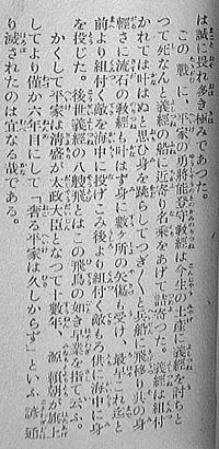 は誠に畏れ多き極みであつた。
この戰に、平家の勇將能登守教經は今生の土産に義經を討ちと
つて死なんと義經の船に近寄り名乘をあげて詰寄つた。義經は組付
かれては叶はぬと思ひ身を跳らしてつぎ〳〵と兵船に飛移り其の身
輕さに流石の教經も叶はず身に數ヶ所の矢傷も受け、最早これ迄と
前より組付く敵を海中に投げこみ後より組付く敵もろ共に海中に身
を投じた。後世義經の八艘飛とはこの飛鳥の如き早業を指て云ふ。
かくして平家は清盛が太政大臣となつて十數年、源賴朝が旗上
してより僅か六年目にして「奢る平家は久しからず」といふ諺通
り滅されたのは宜なる哉である。